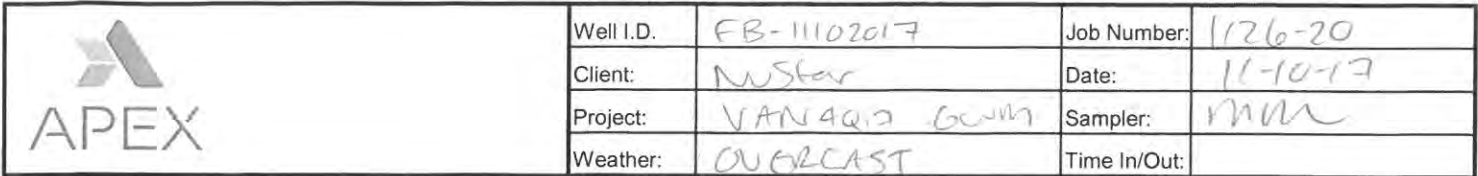 APEX
Well I.D. FB-11102017 Job Number: 1126-20
Client: NuStar Date: 11-10-17
Project: VAN 4Q17 GWM Sampler: MM
Weather: OVERCAST Time In/Out: